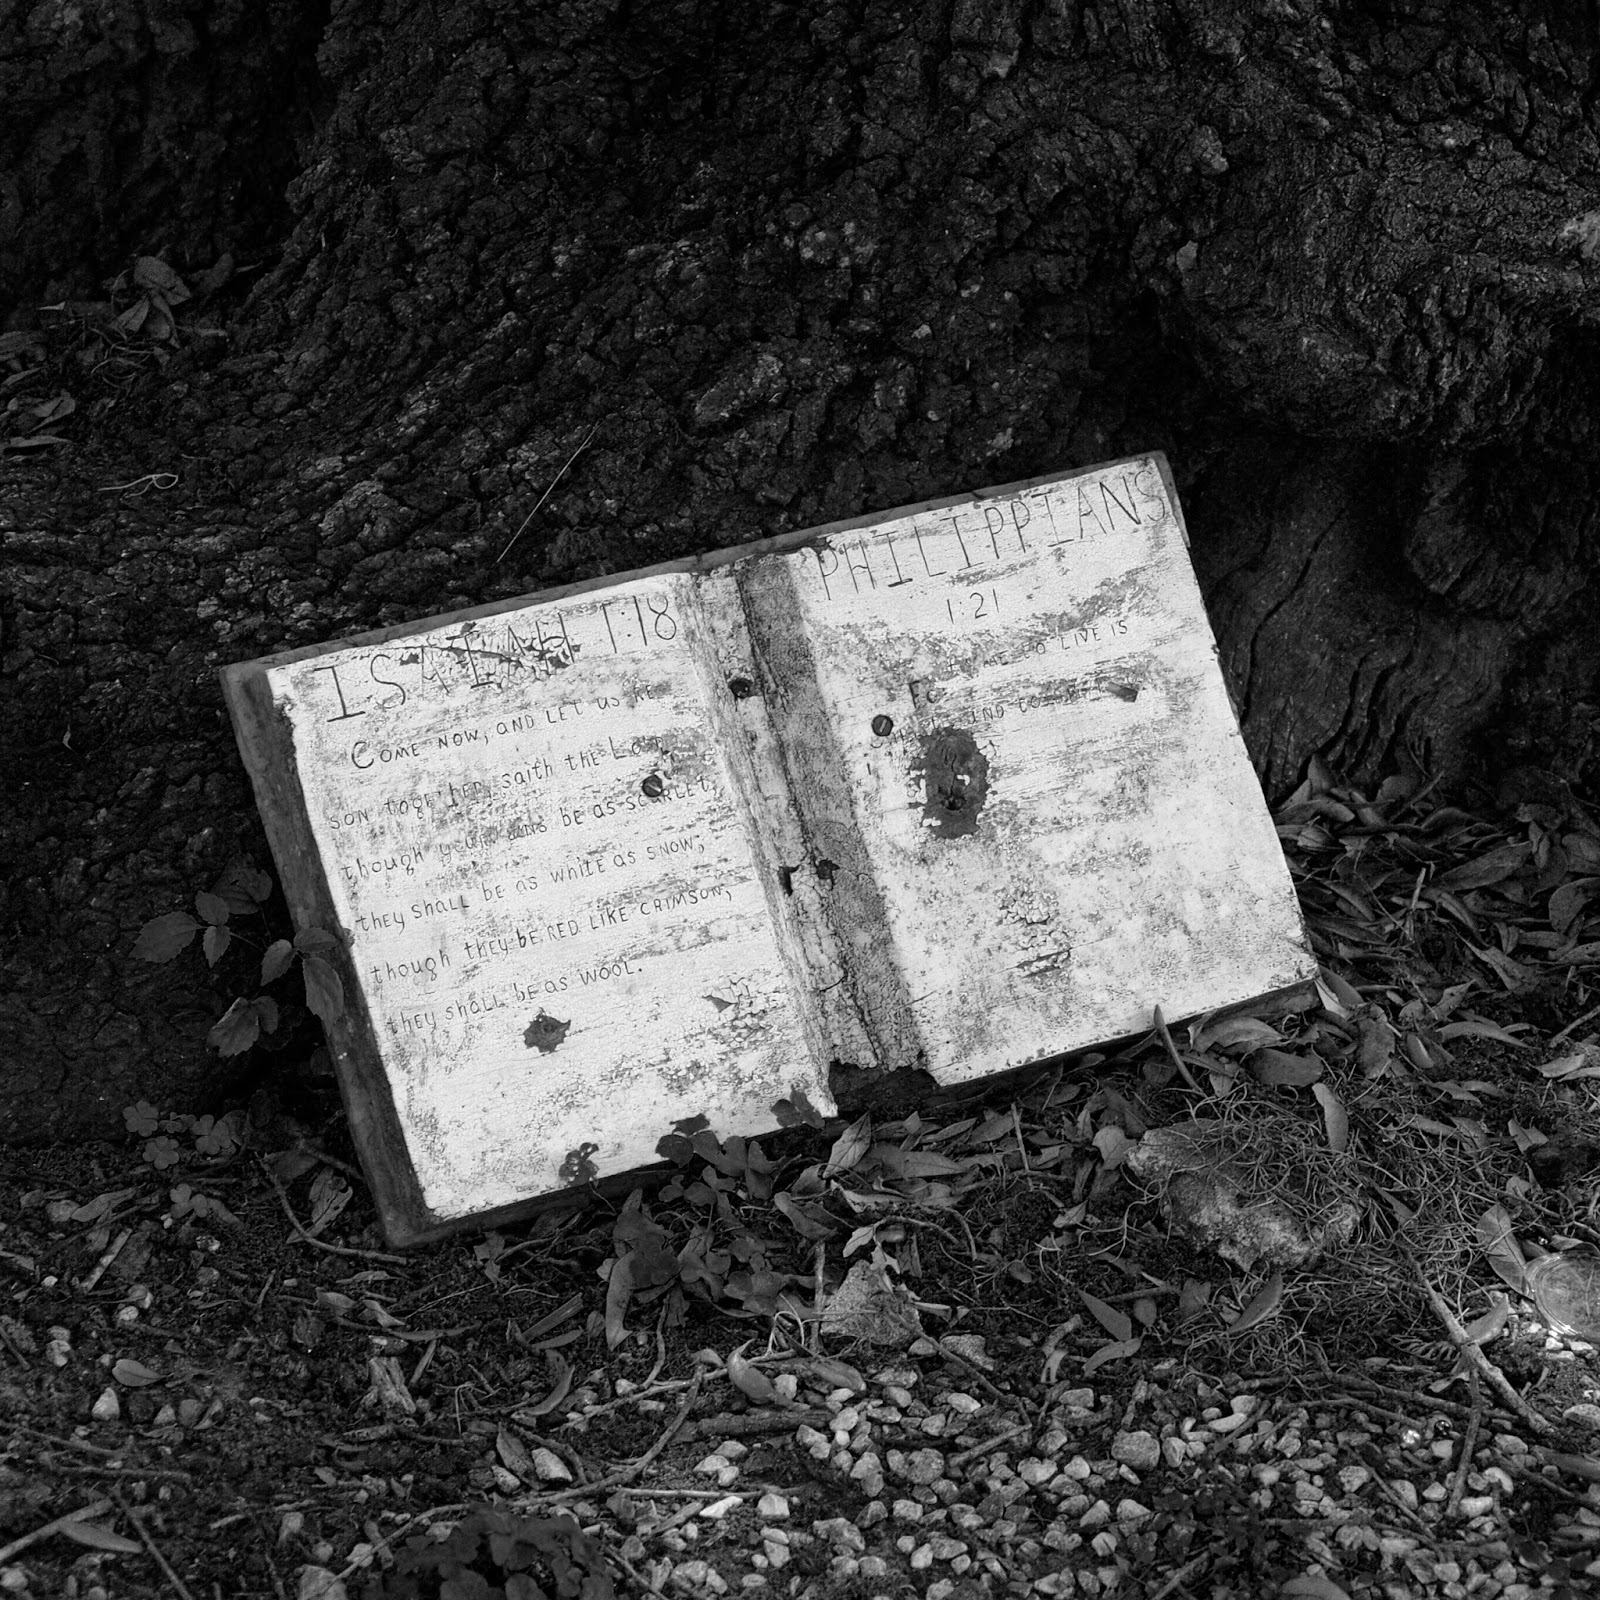 ISAIAH 1:18
COME NOW, AND LET US RE
SON togETHER, saith the LORD
though your sins BE AS SCARLET,
they shall BE AS WHITE AS SNOW;
though they BE RED LIKE CRIMSON,
they shall BE AS WOOL.
PHILIPPIANS
1:21
TO LIVE IS
AND TO